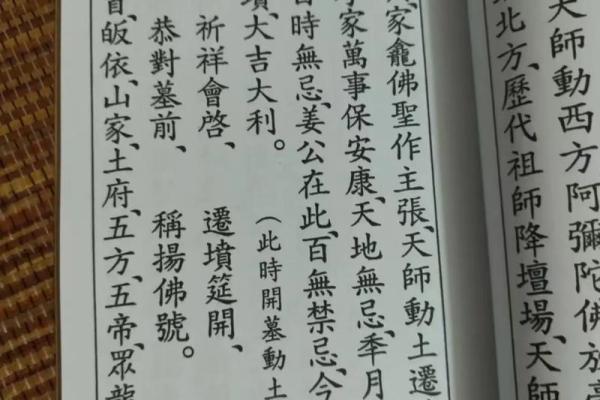 天師動西方阿彌陀佛放
北方、歷代祖師降壇場、天師
家龕佛聖作主張、天師動土遷
家萬事保安康、天地無忌、秊月
時無忌、姜公在此、百無禁忌、今
墳、大吉大利。（此時開墓動土
祈祥會啓、遷墳筵開、
恭對墓前、稱揚佛號。
皈依、山家、土府、五方、五帝、眾龍